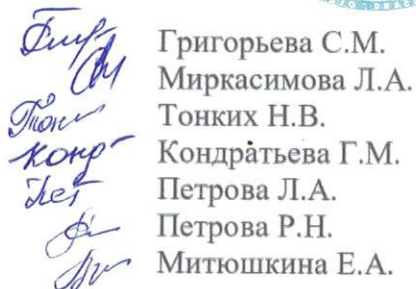 Григорьева С.М.
Миркасимова Л.А.
Тонких Н.В.
Конд Кондратьева Г.М.
Пет Петрова Л.А.
Петрова Р.Н.
Митюшкина Е.А.